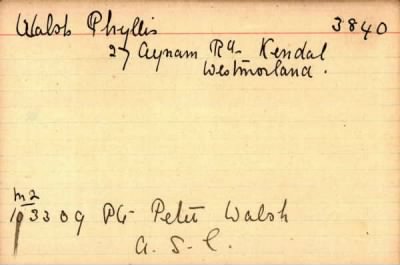 Walsh Phyllis 3840
27 Aynam Rd. Kendal
Westmorland.
M2
193309 Pte Peter Walsh
A. S. C.